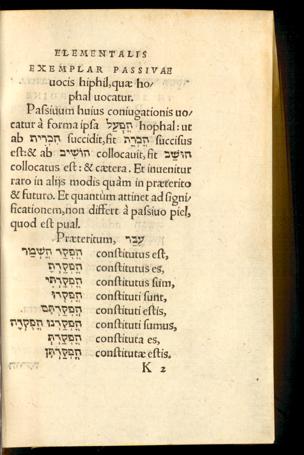 ELEMENTALIS
EXEMPLAR PASSIVAE
uocis hiphil, quæ ho-
phal uocatur.
Passiuum huius coniugationis uo-
catur à forma ipsa הָפְעַל hophal: ut
ab הִכְרִית succidit, fit הָכְרַת succisus
est: & ab הוֹשִׁיב collocauit, fit הוּשַׁב
collocatus est: & cætera. Et inuenitur
raro in alijs modis quàm in præterito
& futuro. Et quantùm attinet ad signi-
ficationem, non differt à passiuo piel,
quod est pual.
Præteritum, עָבַר
הָפְקַד constitutus est,
הָפְקַדְתָּ constitutus es,
הָפְקַדְתִּי constitutus sum,
הָפְקְדוּ constituti sunt,
הָפְקַדְתֶּם constituti estis,
הָפְקַדְנוּ הָפְקְדָה constituti sumus,
הָפְקַדְתְּ constituta es,
הָפְקַדְתֶּן constitutæ estis.
K 2